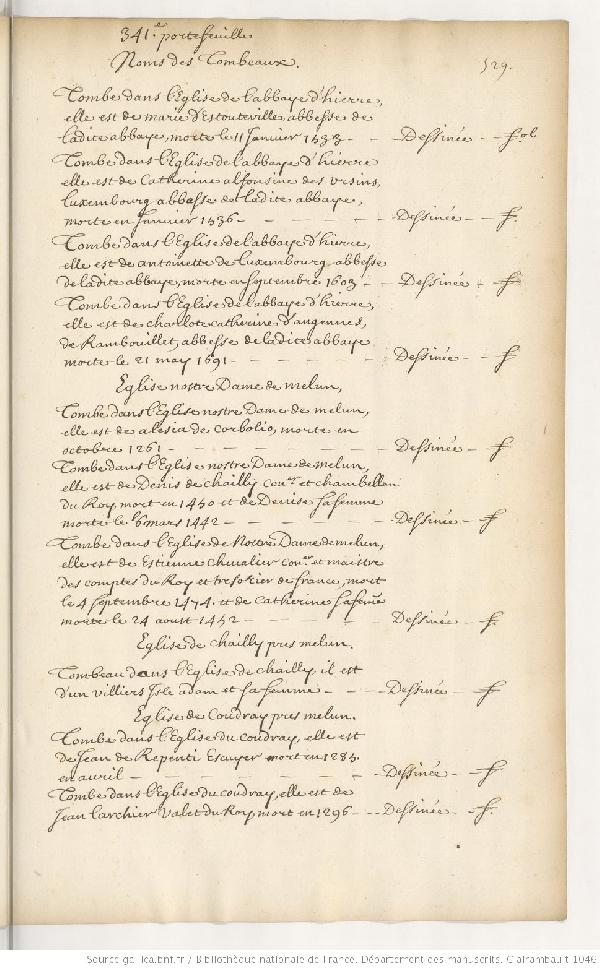 341.e portefeuille
Noms des Tombeaux.
529.
Tombe dans l'Eglise de l'abbaye d'hierre,
elle est de marie d'Estouteville abbesse de
ladite abbaye, morte le 11 Janvier 1533 - - Dessinée - - fol
Tombe dans l'Eglise de l'abbaye d'hierre
elle est de Catherine alfonsine des Ursins,
Luxembourg abbesse de ladite abbaye,
morte en Janvier 1536 - - - - - Dessinée - - f.
Tombe dans l'Eglise de l'abbaye d'hierre,
elle est de antoinette de Luxembourg, abbesse
de ladite abbaye, morte en Septembre 1603 - - Dessinée - f
Tombe dans l'Eglise de l'abbaye d'hierre,
elle est de charlote catherine d'angennes,
de Rambouillet, abbesse de ladite abbaye
morte le 21 may 1691 - - - - - Dessinée - - f
Eglise nostre Dame de melun,
Tombe dans l'Eglise nostre Dame de melun,
elle est de alesia de Corbolio, morte en
octobre 1261 - - - - - Dessinée - - f
Tombe dans l'Eglise nostre Dame de melun,
elle est de Denis de chailly con.er et chambellan
du Roy mort en 1450 et de Denise sa femme
morte le 6 mars 1442 - - - - - Dessinée - - f
Tombe dans l'Eglise de Nostre Dame de melun,
elle est de Estienne chevalier con.er et maistre
des comptes du Roy et tresorier de france, mort
le 4 septembre 1474. et de Catherine sa feme
morte le 24 aoust 1452 - - - - Dessinée - - f.
Eglise de chailly pres melun.
Tombeau dans l'Eglise de chailly, il est
d'un villiers Isle adam et sa femme - - - Dessinée - - f
Eglise de Coudray pres melun.
Tombe dans l'Eglise du Coudray, elle est
de Jean de Repenti Escuyer mort en 1285.
en avril - - - - - - - Dessinée - - f
Tombe dans l'Eglise du coudray, elle est de
Jean Larchier Valet du Roy, mort en 1296 - - Dessinée - - f.
Source gallica.bnf.fr / Bibliothèque nationale de France. Département des manuscrits. Clairambault 1046